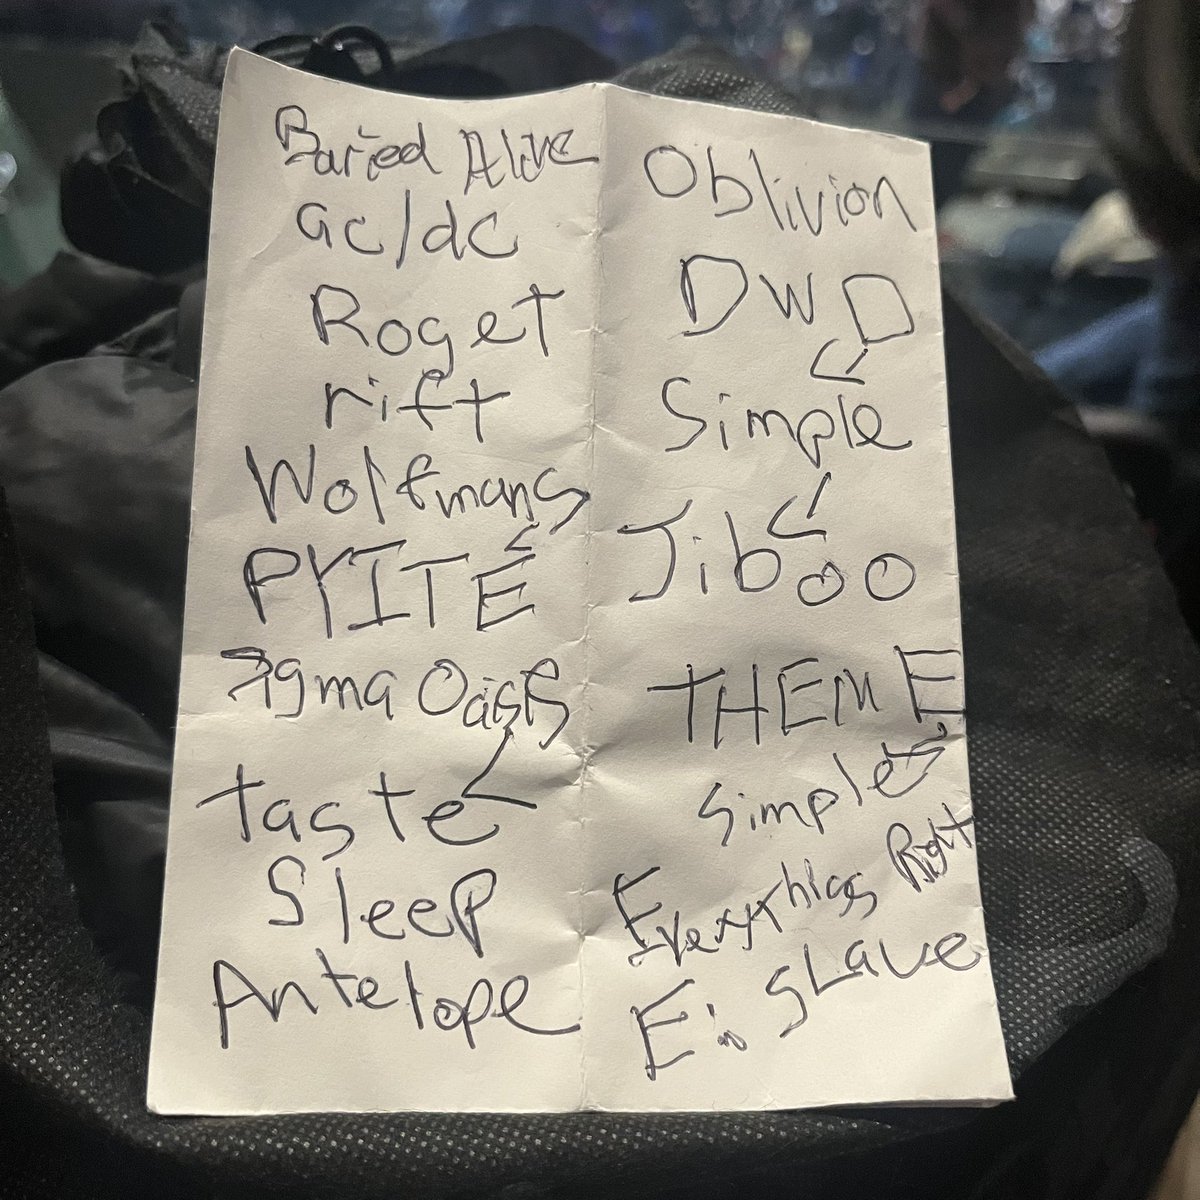 Buried Alive
ac/dc
Roget
rift
Wolfmans
PYITE
Sigma Oasis
taste
Sleep
Antelope
Oblivion
DWD
Simple
Jiboo
THEME
Simple
Everythings Right
E: SLave